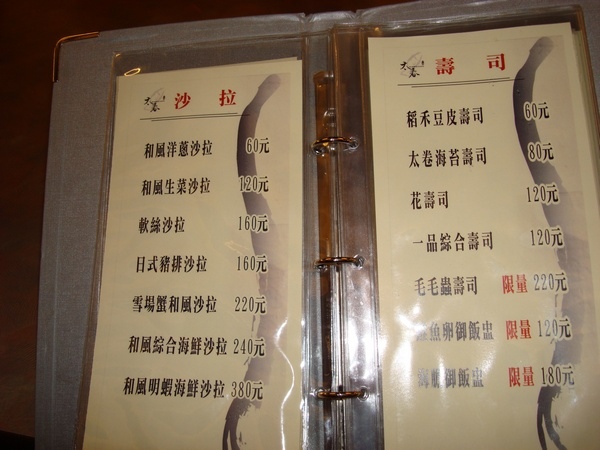 沙拉
和風洋蔥沙拉 60元
和風生菜沙拉 120元
軟絲沙拉 160元
日式豬排沙拉 160元
雪場蟹和風沙拉 220元
和風綜合海鮮沙拉 240元
和風明蝦海鮮沙拉 380元
壽司
稻禾豆皮壽司 60元
太卷海苔壽司 80元
花壽司 120元
一品綜合壽司 120元
毛毛蟲壽司 限量 220元
魚卵御飯盅 限量 120元
御飯盅 限量 180元